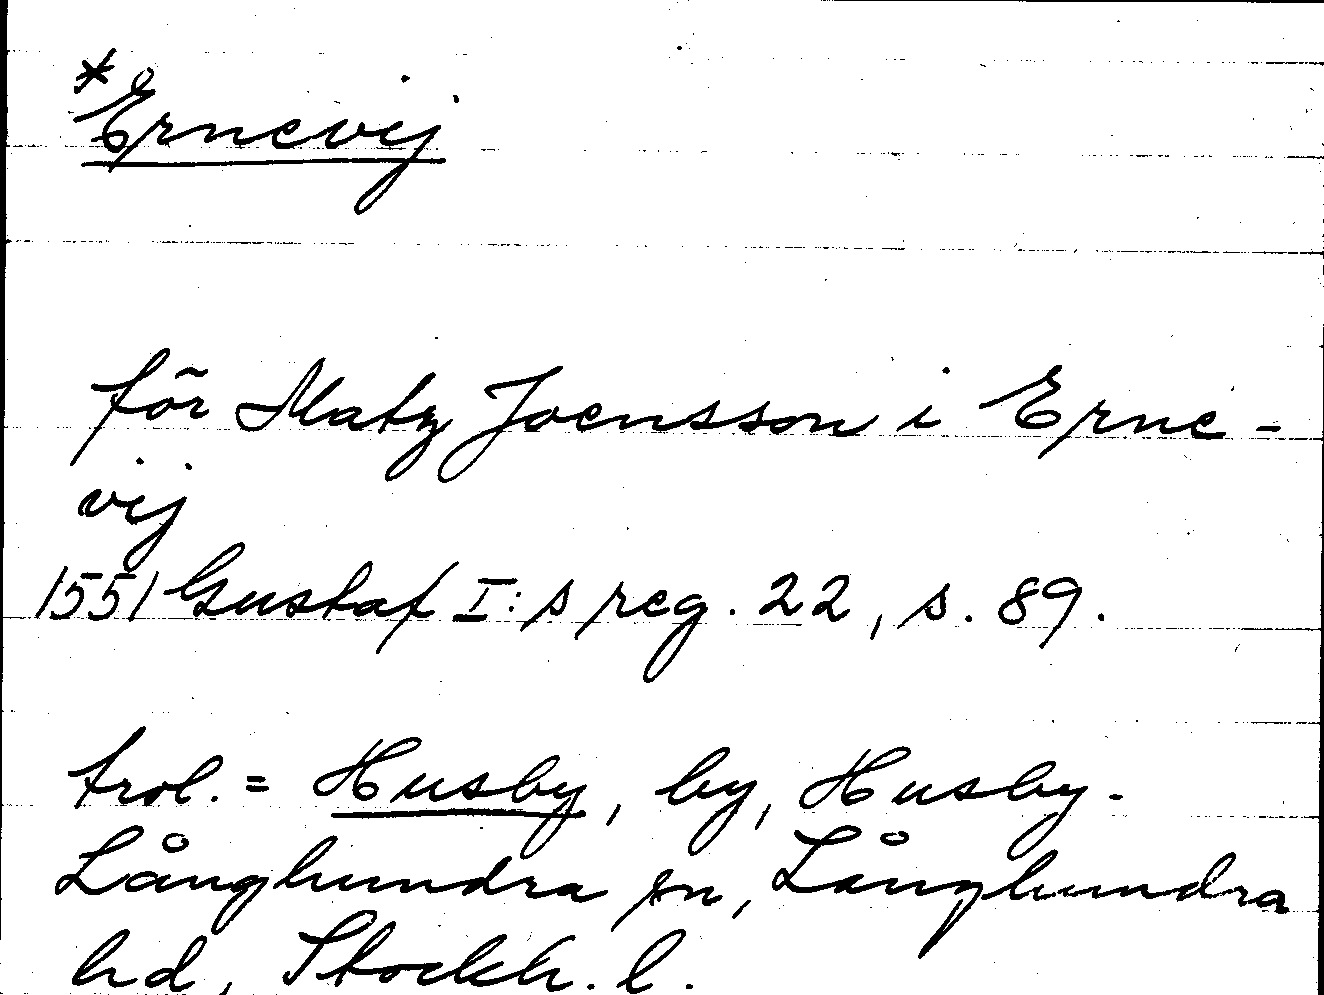 *Ernevij
för Matz Joensson i Erne-
vij
1551 Gustaf I:s reg. 22, s. 89.
trol. = Husby, by, Husby-
Långhundra sn, Långhundra
hd, Stockh. l.